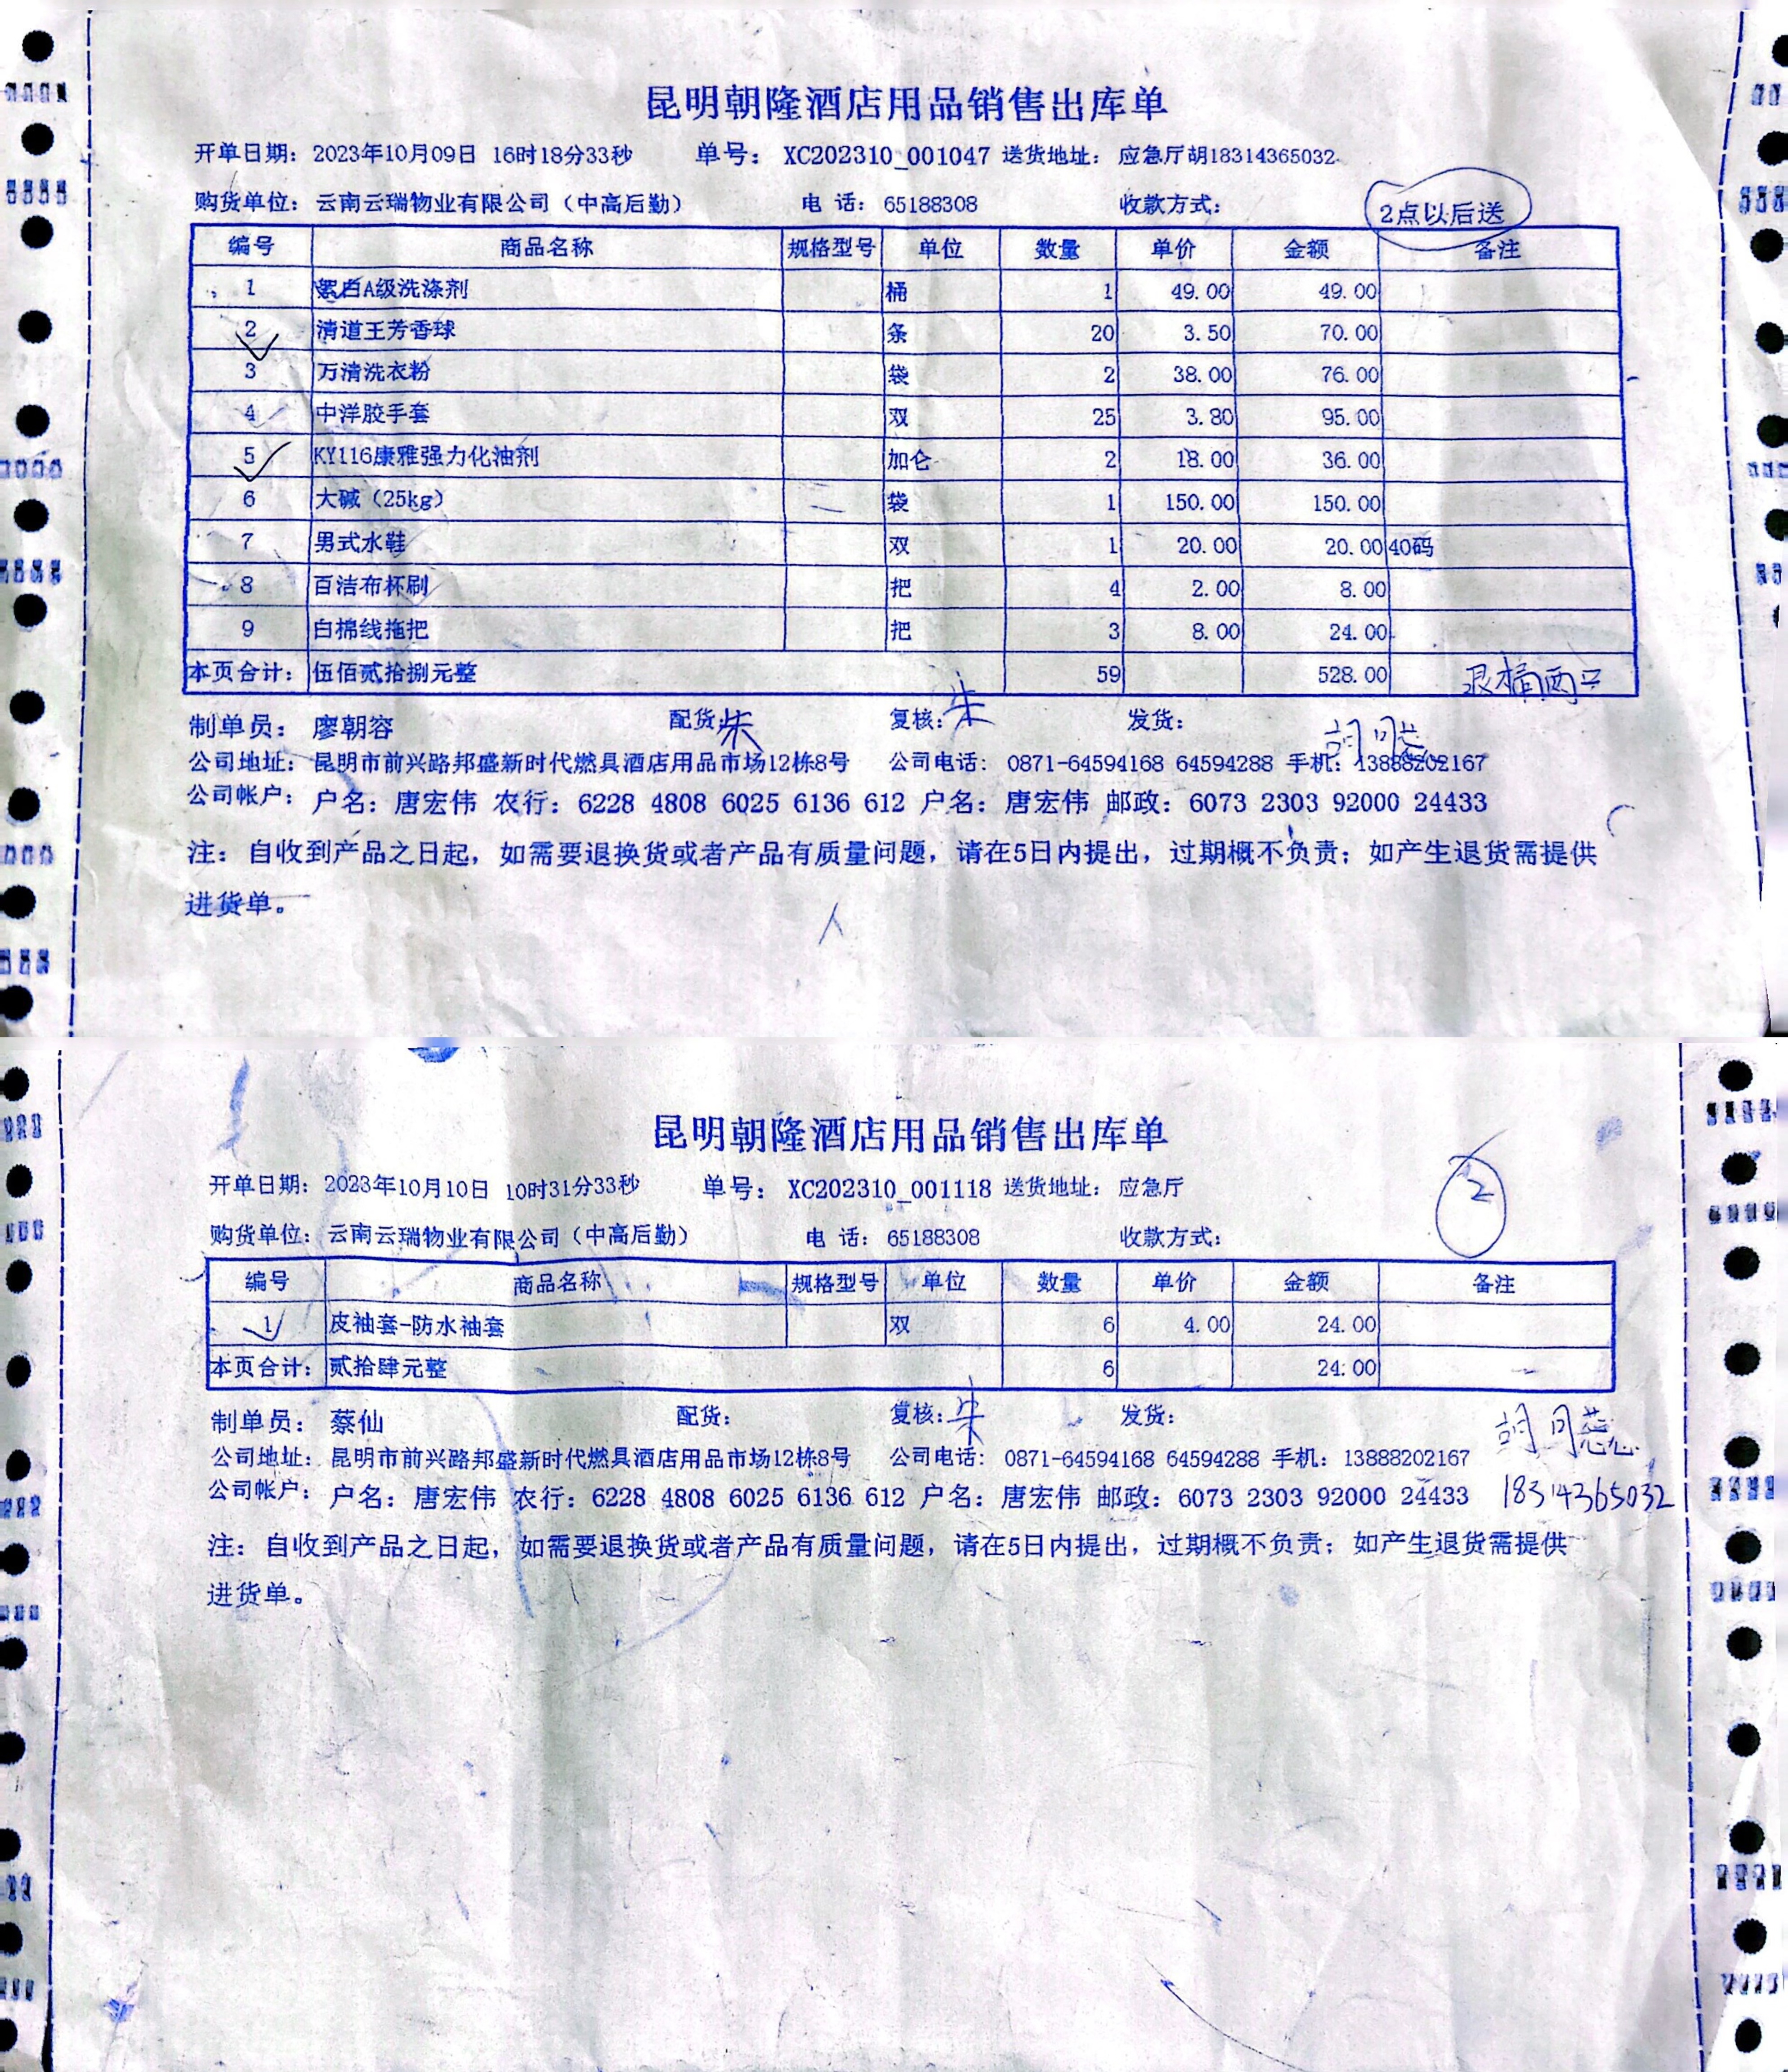 昆明朝隆酒店用品销售出库单
开单日期：2023年10月09日 16时18分33秒 单号：XC202310_001047 送货地址：应急厅胡18314365032
购货单位：云南云瑞物业有限公司（中高后勤） 电 话：65188308 收款方式： 2点以后送
编号 商品名称 规格型号 单位 数量 单价 金额 备注
1 絮白A级洗涤剂 桶 1 49.00 49.00
2 清道王芳香球 条 20 3.50 70.00
3 万清洗衣粉 袋 2 38.00 76.00
4 中洋胶手套 双 25 3.80 95.00
5 KY116康雅强力化油剂 加仑 2 18.00 36.00
6 大碱（25kg） 袋 1 150.00 150.00
7 男式水鞋 双 1 20.00 20.00 40码
8 百洁布杯刷 把 4 2.00 8.00
9 白棉线拖把 把 3 8.00 24.00
本页合计：伍佰贰拾捌元整 59 528.00 退桶两只
制单员：廖朝容 配货：朱 复核：朱 发货： 胡同蕊
公司地址：昆明市前兴路邦盛新时代燃具酒店用品市场12栋8号 公司电话：0871-64594168 64594288 手机：13888202167
公司帐户：户名：唐宏伟 农行：6228 4808 6025 6136 612 户名：唐宏伟 邮政：6073 2303 92000 24433
注：自收到产品之日起，如需要退换货或者产品有质量问题，请在5日内提出，过期概不负责；如产生退货需提供
进货单。
昆明朝隆酒店用品销售出库单
开单日期：2023年10月10日 10时31分33秒 单号：XC202310_001118 送货地址：应急厅 2
购货单位：云南云瑞物业有限公司（中高后勤） 电 话：65188308 收款方式：
编号 商品名称 规格型号 单位 数量 单价 金额 备注
1 皮袖套-防水袖套 双 6 4.00 24.00
本页合计：贰拾肆元整 6 24.00
制单员：蔡仙 配货： 复核：朱 发货： 胡同蕊
公司地址：昆明市前兴路邦盛新时代燃具酒店用品市场12栋8号 公司电话：0871-64594168 64594288 手机：13888202167
公司帐户：户名：唐宏伟 农行：6228 4808 6025 6136 612 户名：唐宏伟 邮政：6073 2303 92000 24433 18314365032
注：自收到产品之日起，如需要退换货或者产品有质量问题，请在5日内提出，过期概不负责；如产生退货需提供
进货单。